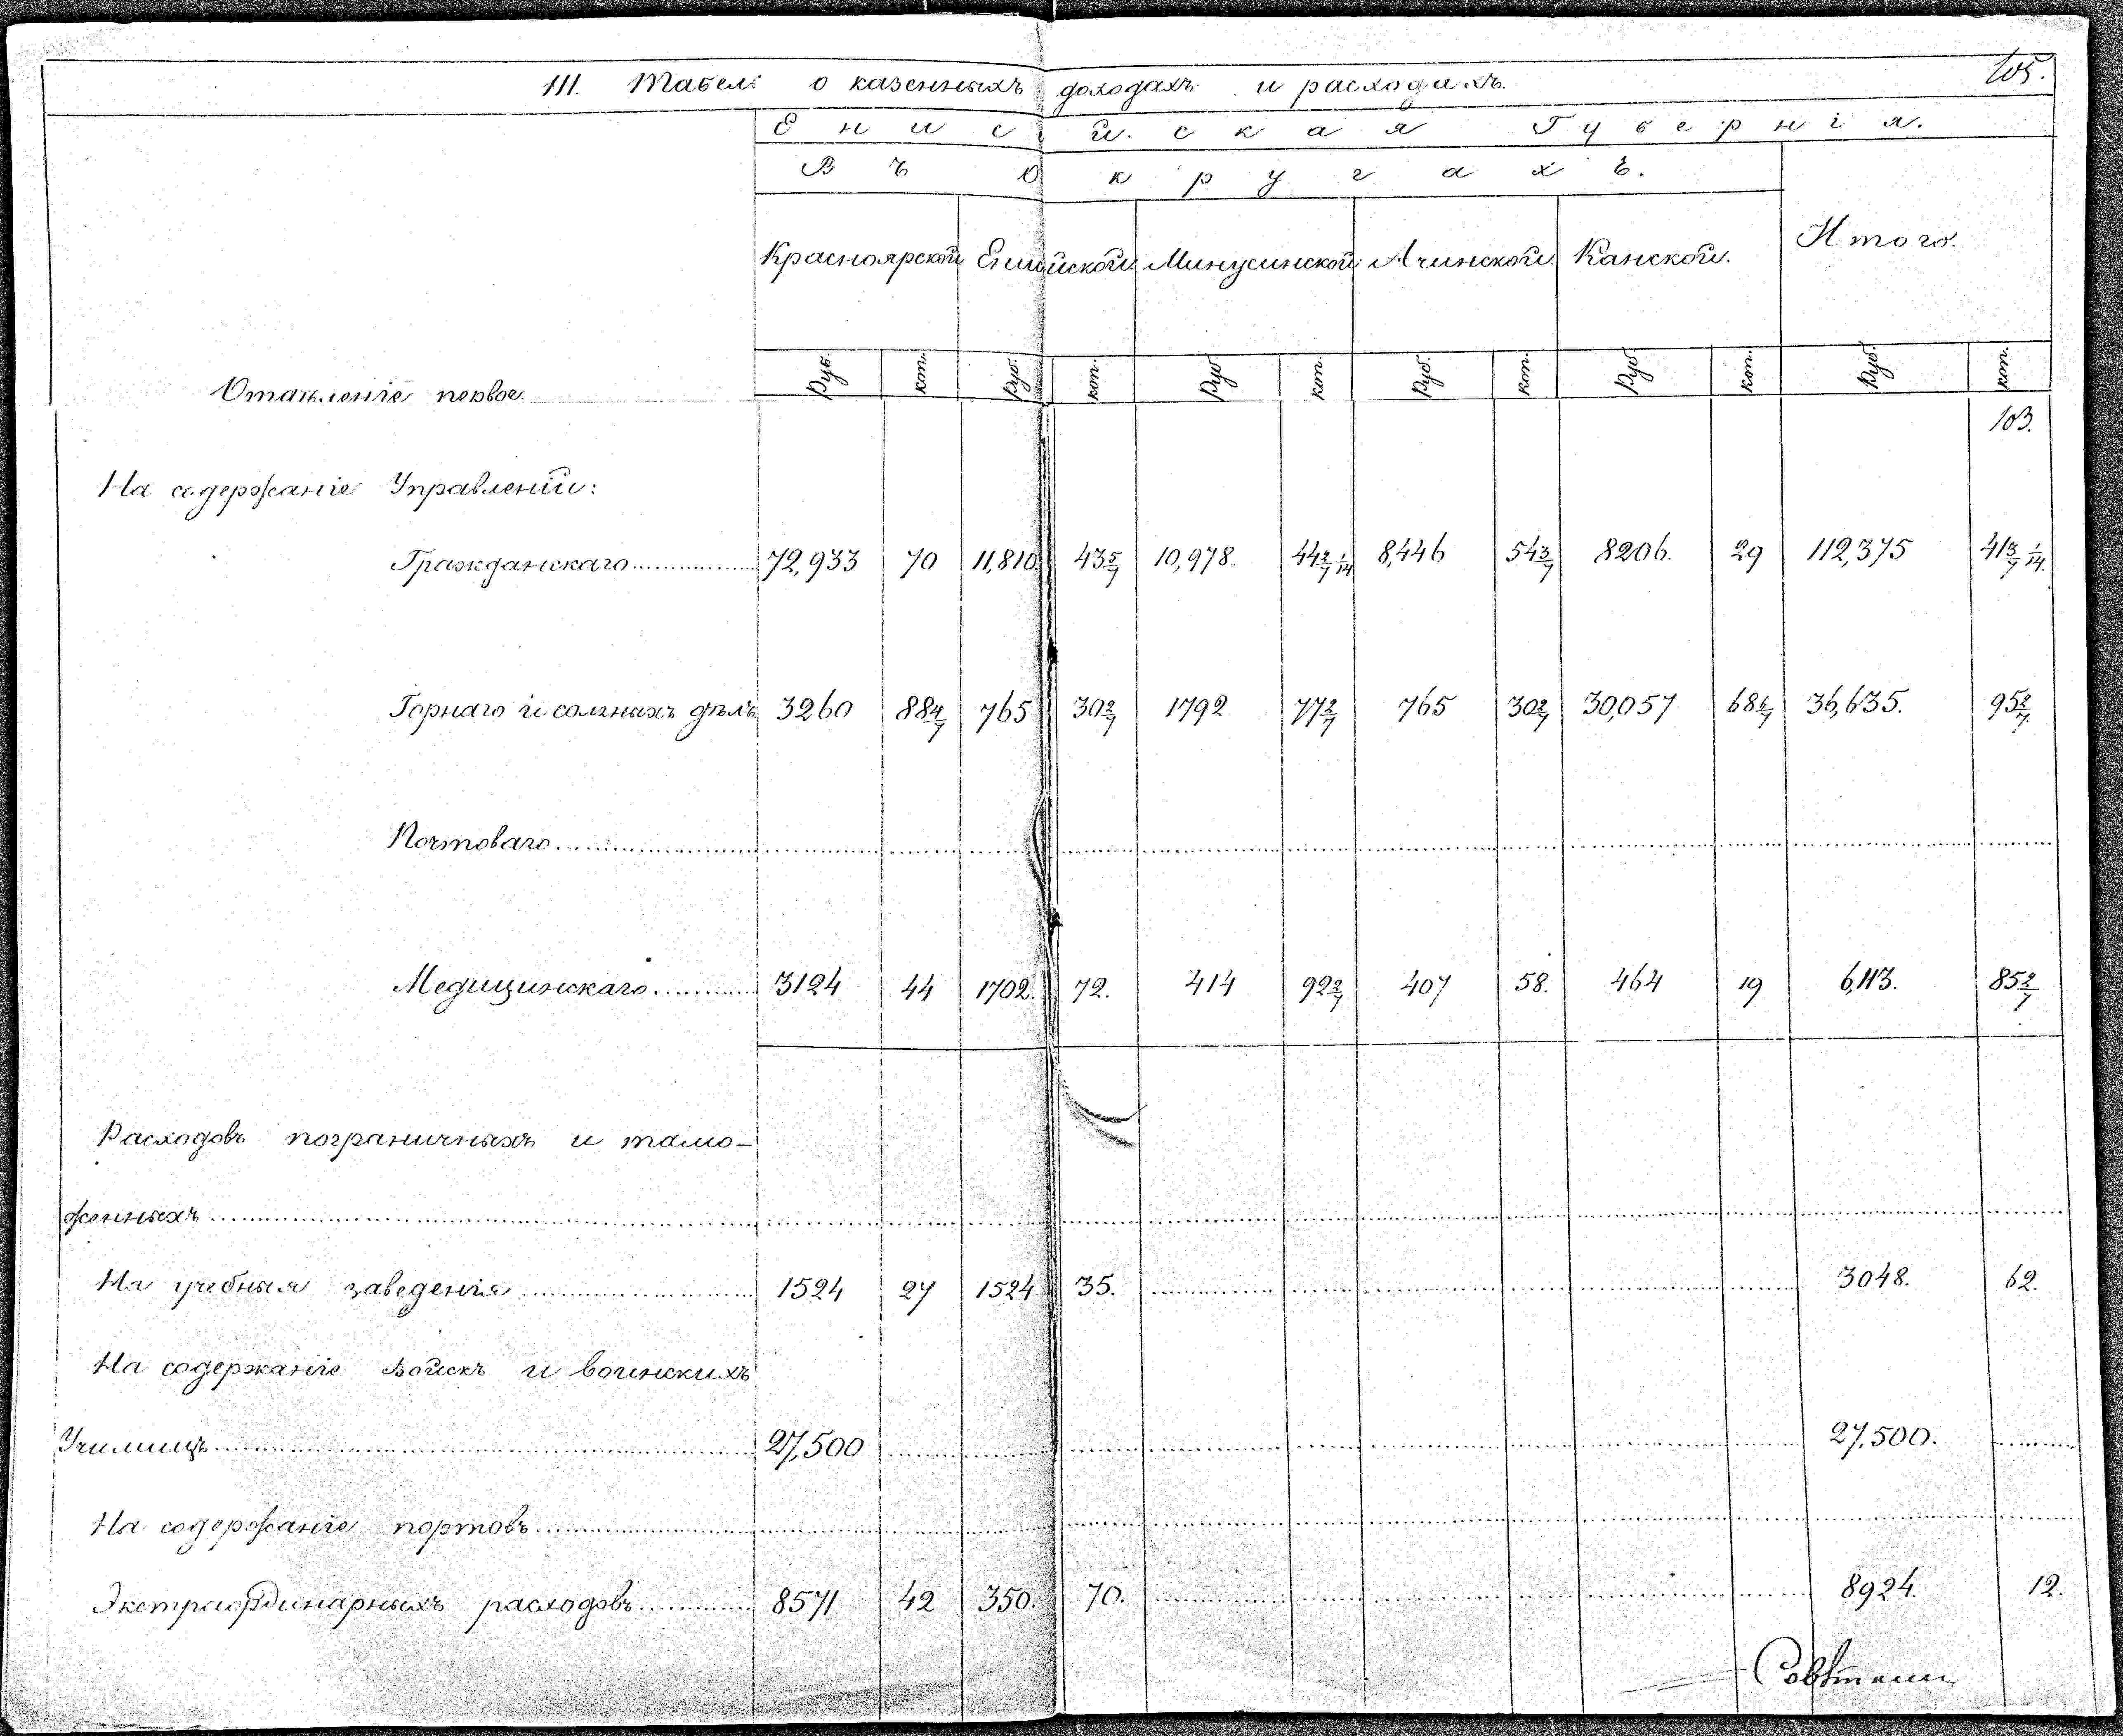 105.
III. Табель о казенныхъ доходахъ и расходахъ.
Енисейская Губернія.
Въ Округахъ.
Красноярской Енисейской Минусинской Ачинской Канской. Итого.
Руб. коп. Руб. коп. Руб. коп. Руб. коп. Руб. коп. Руб. коп.
Отдѣленіе первое.
103.
На содержаніе Управленій:
Гражданскаго 72,933 70 11,810. 43 5/7 10,978. 44 2/7 1/14 8,446 54 3/7 8206. 29 112,375 41 3/7 1/14.
Горнаго и солныхъ дѣлъ 3260 88 4/7 765 30 2/7 1792 77 2/7 765 30 2/7 30,057 68 6/7 36,635. 95 2/7.
Почтоваго
Медицинскаго 3124 44 1702. 72. 414 92 2/7 407 58. 464 19 6,113. 85 2/7
Расходовъ пограничныхъ и тамо-
женныхъ
На учебныя заведенія 1524 27 1524 35. 3048. 62.
На содержаніе Войскъ и воинскихъ
Училищъ 27,500 27,500.
На содержаніе портовъ
Экстраординарныхъ расходовъ 8571 42 350. 70. 8924. 12.